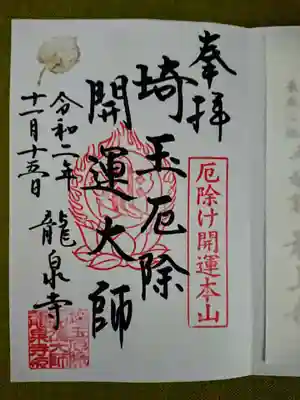 奉拝
厄除け開運本山
埼玉厄除
開運大師
令和二年 龍泉寺
十一月十五日